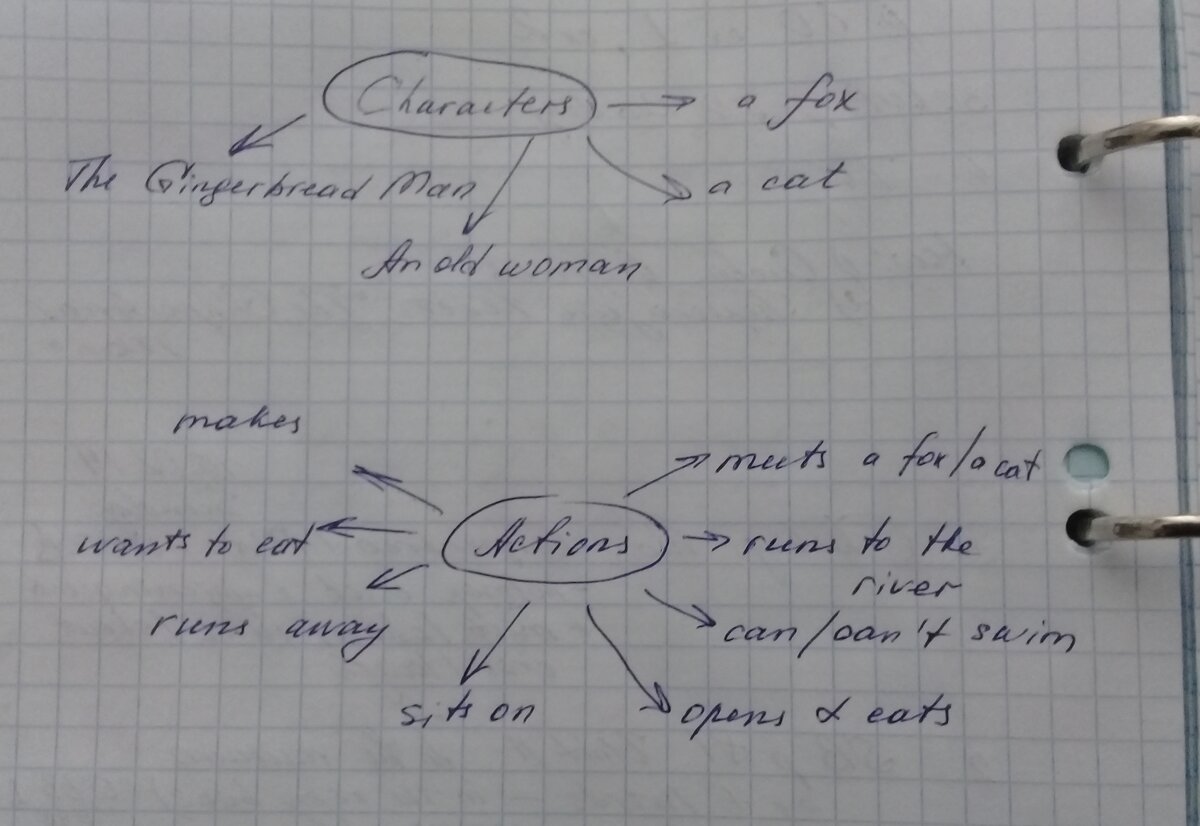 Characters
a fox
The Gingerbread Man
a cat
An old woman
makes
meets a fox/a cat
Actions
wants to eat
runs to the
river
runs away
can/can't swim
sits on
opens & eats